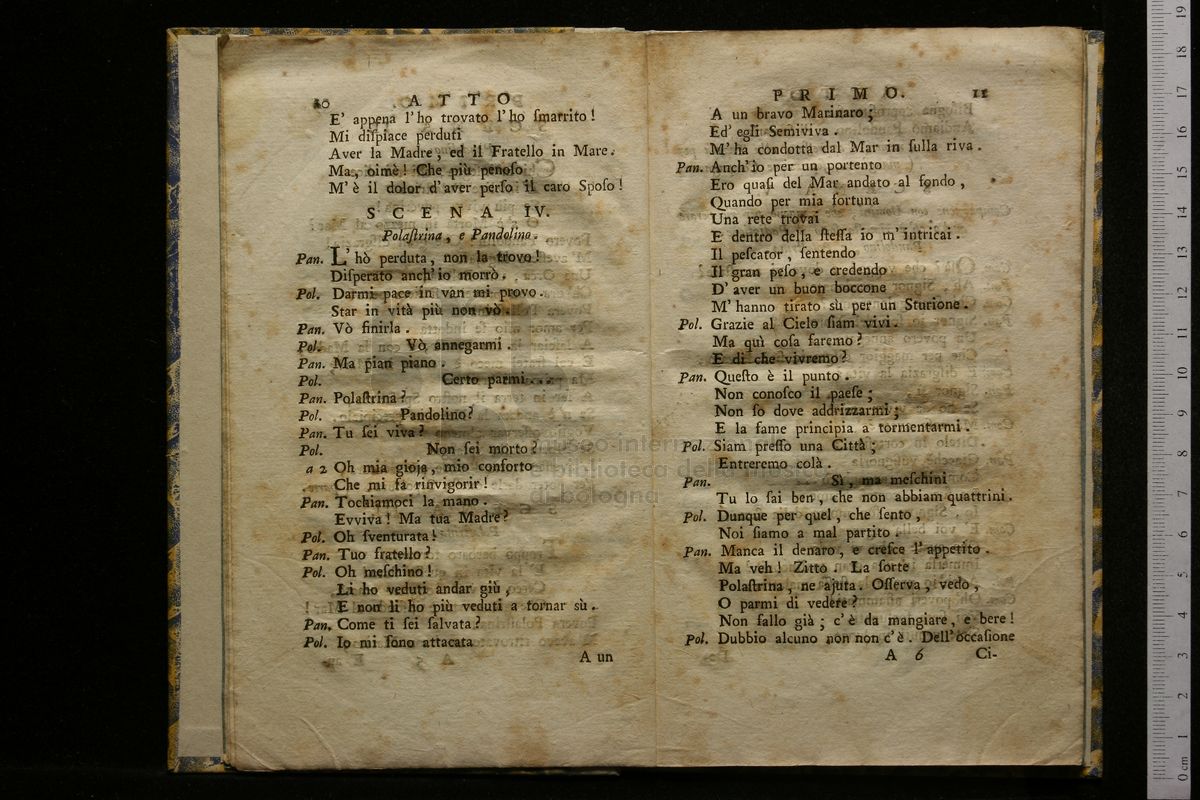 10 ATTO
E' appena l'ho trovato l'ho ſmarrito!
Mi diſpiace perduti
Aver la Madre, ed il Fratello in Mare.
Ma, oimè! Che più penoſo
M'è il dolor d'aver perſo il caro Spoſo!
SCENA IV.
Polaſtrina, e Pandolino.
Pan. L'hò perduta, non la trovo!
Diſperato anch'io morrò.
Pol. Darmi pace in van mi provo.
Star in vità più non vò.
Pan. Vò finirla.
Pol. Vò annegarmi.
Pan. Ma pian piano.
Pol. Certo parmi...
Pan. Polaſtrina?
Pol. Pandolino?
Pan. Tu ſei viva?
Pol. Non ſei morto?
a 2 Oh mia gioja, mio conforto
Che mi fa rinvigorir!
Pan. Tochiamoci la mano.
Evviva! Ma tua Madre?
Pol. Oh ſventurata!
Pan. Tuo fratello?
Pol. Oh meſchino!
Li ho veduti andar giù,
E non li ho più veduti a tornar sù.
Pan. Come ti ſei ſalvata?
Pol. Io mi ſono attacata
A un
PRIMO. 11
A un bravo Marinaro;
Ed' egli Semiviva.
M'ha condotta dal Mar in ſulla riva.
Pan. Anch'io per un portento
Ero quaſi del Mar andato al fondo,
Quando per mia fortuna
Una rete trovai
E dentro della ſteſſa io m'intricai.
Il peſcator, ſentendo
Il gran peſo, e credendo
D'aver un buon boccone
M'hanno tirato sù per un Sturione.
Pol. Grazie al Cielo ſiam vivi.
Ma quì coſa faremo?
E di che vivremo?
Pan. Queſto è il punto.
Non conoſco il paeſe;
Non ſo dove addrizzarmi;
E la fame principia a tormentarmi.
Pol. Siam preſſo una Città;
Entreremo colà.
Pan. Sì, ma meſchini
Tu lo ſai ben, che non abbiam quattrini.
Pol. Dunque per quel, che ſento,
Noi ſiamo a mal partito.
Pan. Manca il denaro, e creſce l'appetito.
Ma veh! Zitto. La ſorte
Polaſtrina, ne ajuta. Oſſerva, vedo,
O parmi di vedere?
Non fallo già; c'è da mangiare, e bere!
Pol. Dubbio alcuno non non c'è. Dell'occaſione
A 6 Ci-
museo internazionale
e biblioteca della musica
di bologna
0 cm 1 2 3 4 5 6 7 8 9 10 11 12 13 14 15 16 17 18 19